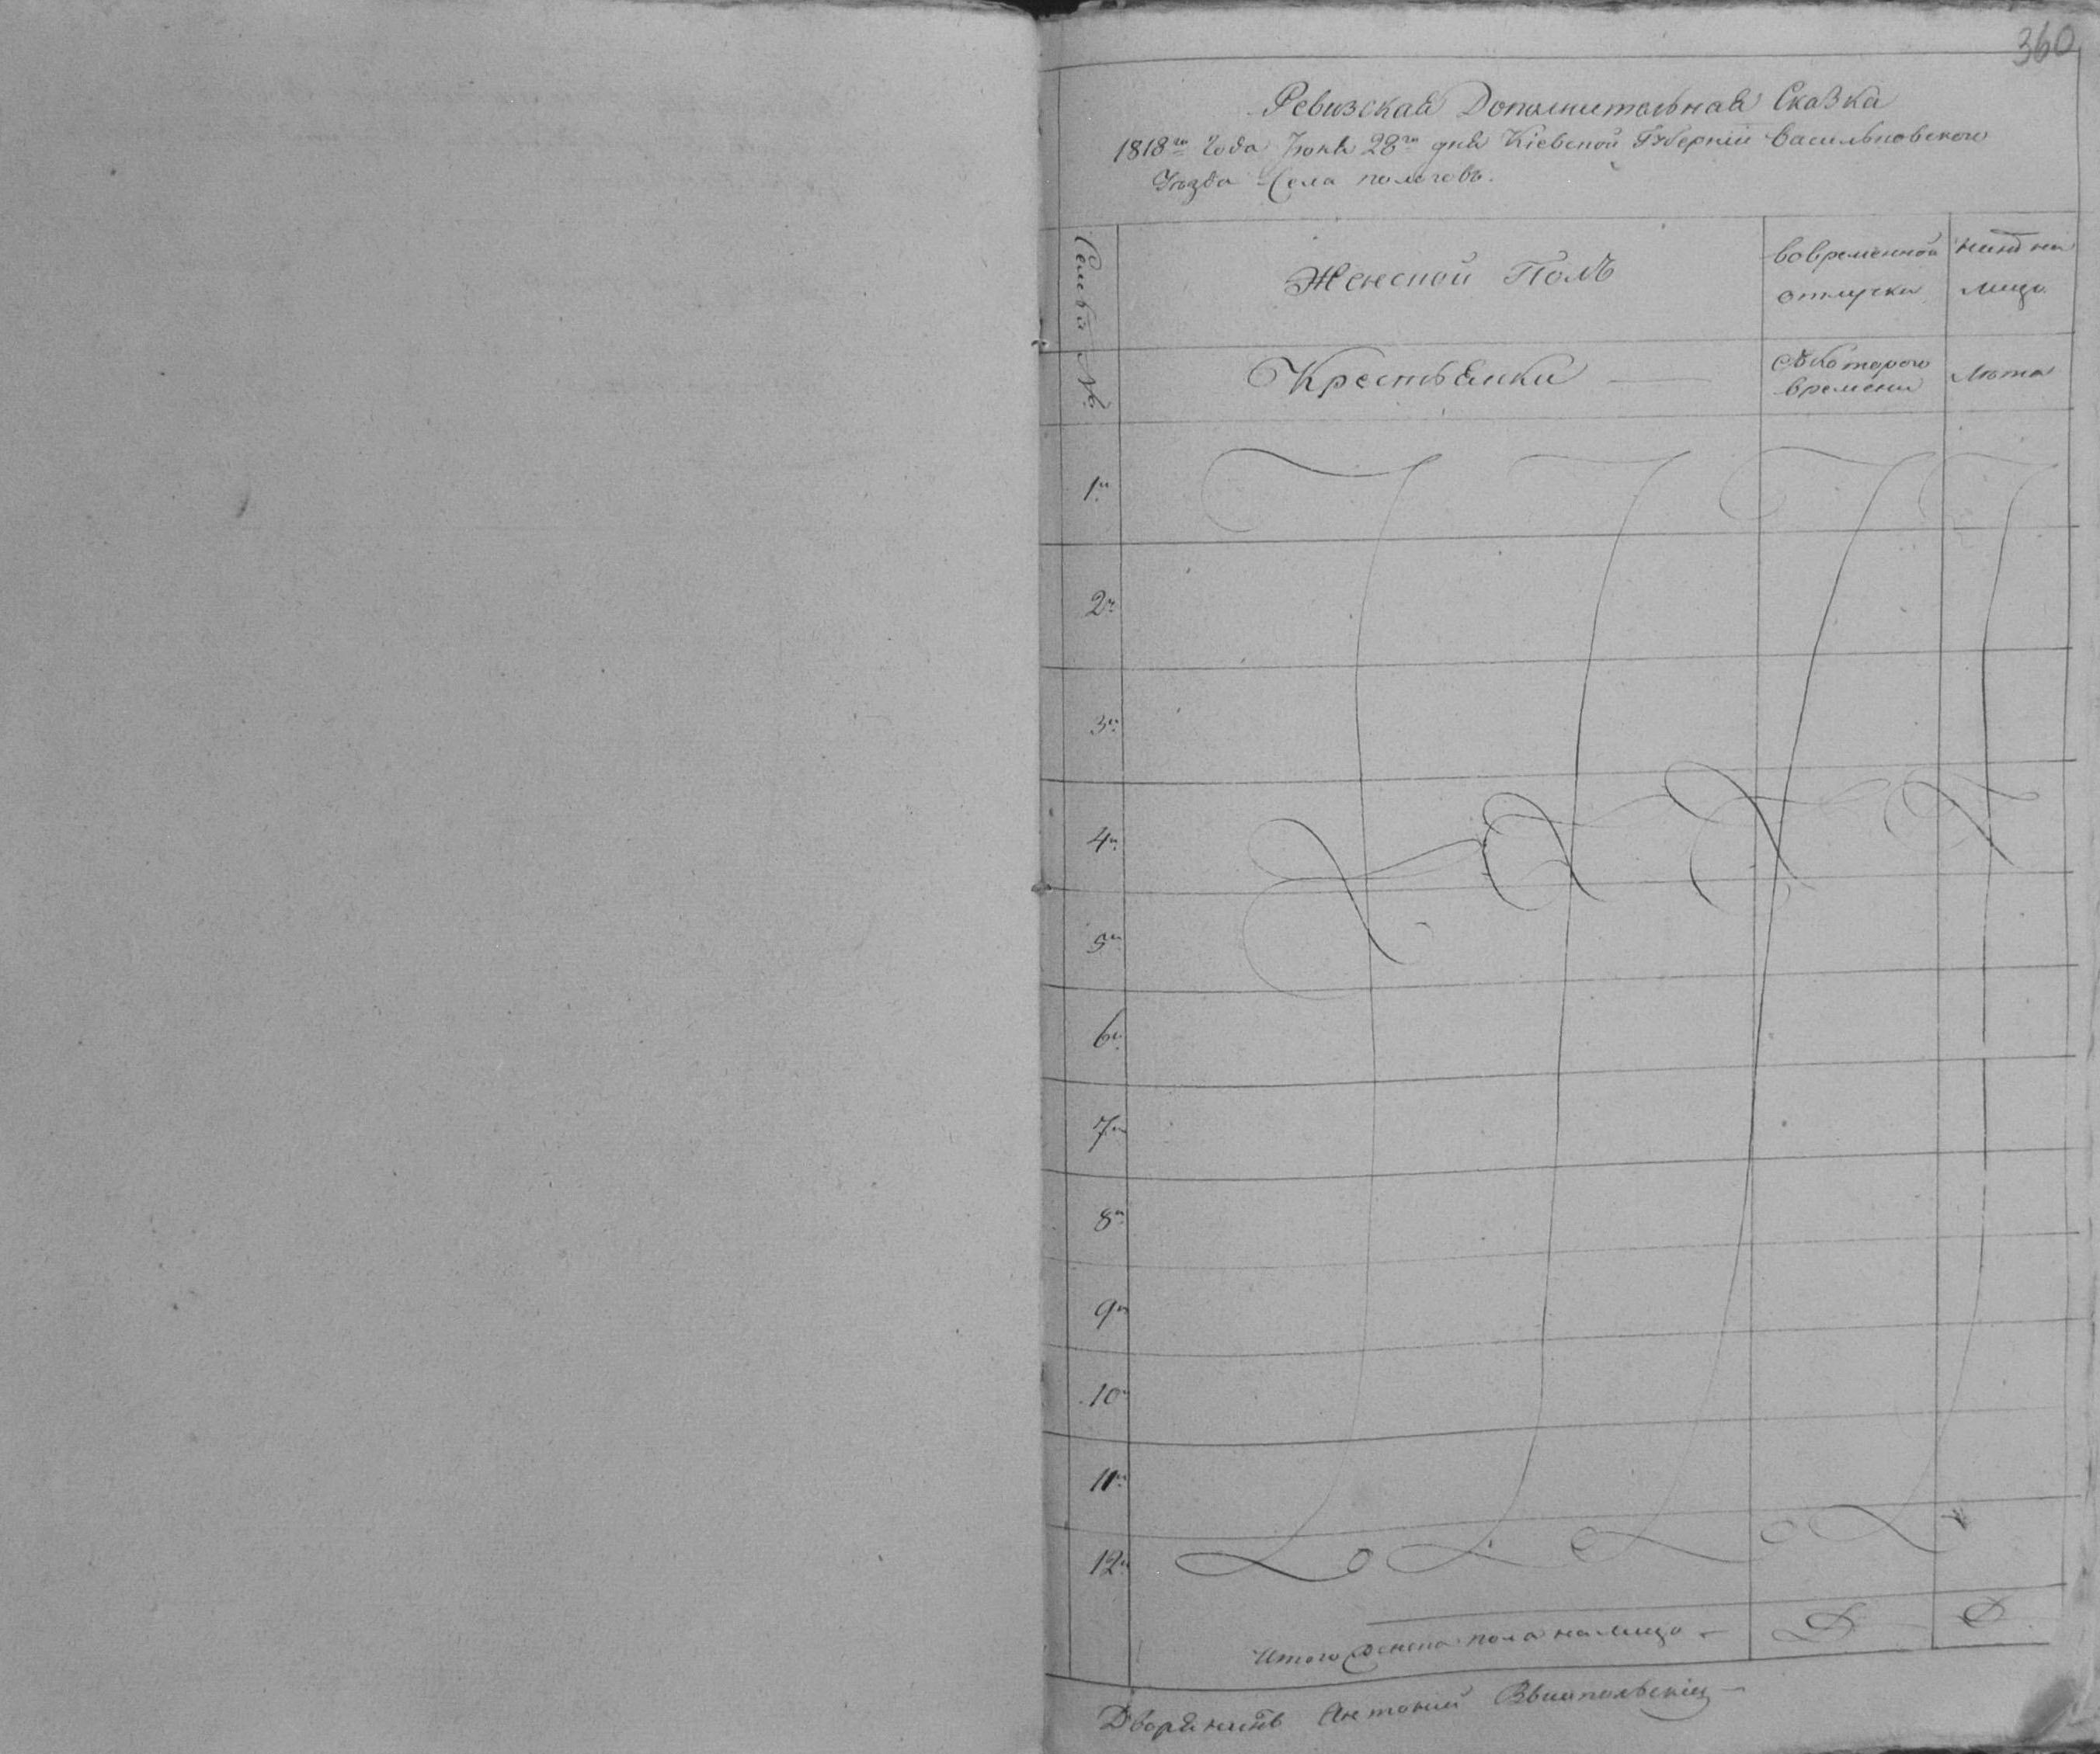 360
Ревизская Дополнительная Сказка
1818го года Июня 28го дня Кіевской Губерніи Васильковского
Уезда Села пологовъ.
Семьи №.
Женской Полъ
во временной
отлучки
ныне на
лицо
Крестьянки
Съ которого
времени
лета
1я
2я
3я
4я
5я
6я
7я
8я
9я
10я
11я
12я
Итого женска пола налицо
Дворянинъ Антоній